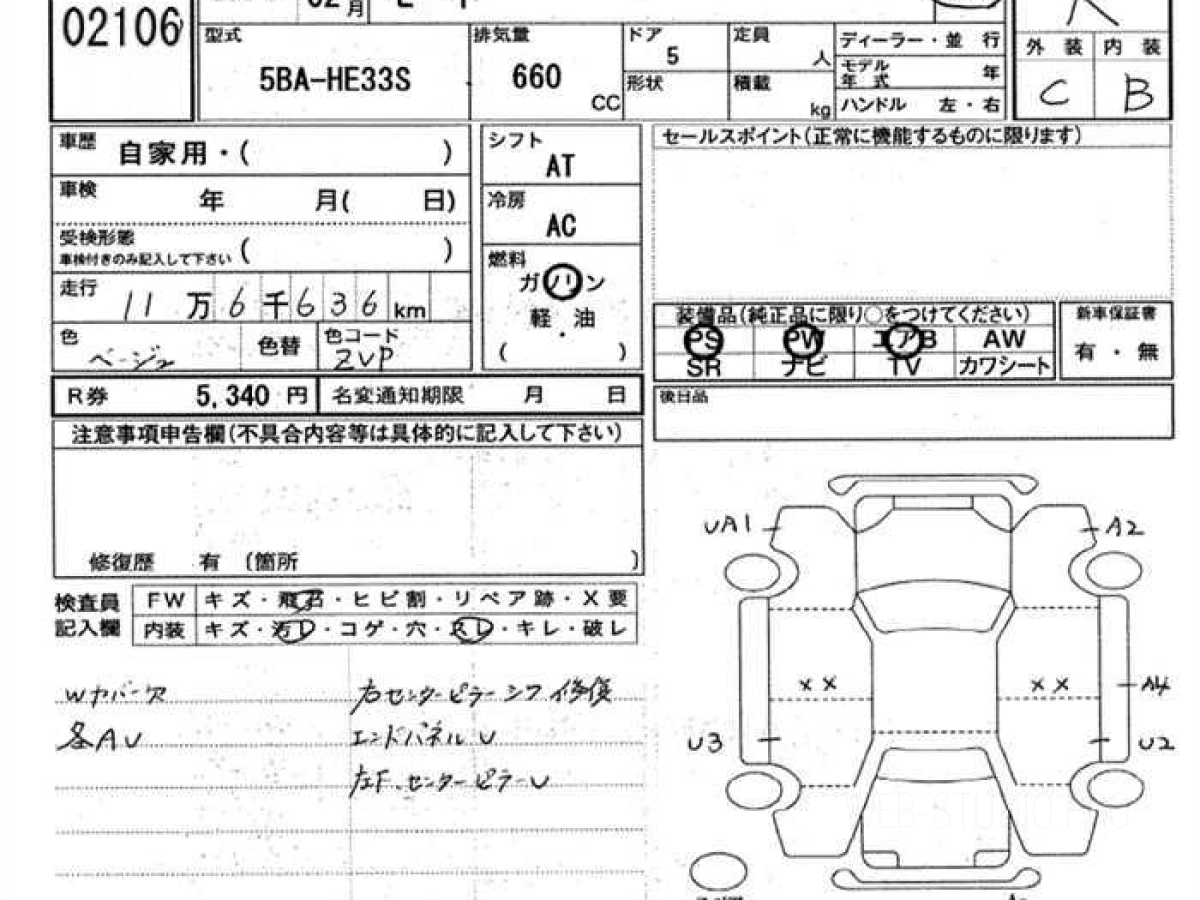 02106
02月
型式
5BA-HE33S
排気量
660
CC
ドア
5
形状
定員
人
積載
kg
ディーラー・並 行
モデル
年 式
年
ハンドル 左・右
外 装 内 装
C B
車歴
自家用・( )
車検
年 月( 日)
受検形態
車検付きのみ記入して下さい ( )
走行
11 万 6 千 6 3 6 km
色
ベージュ
色替
色コード
ZVP
シフト
AT
冷房
AC
燃料
ガソリン
軽 油
・
( )
セールスポイント(正常に機能するものに限ります)
装備品(純正品に限り○をつけてください)
PS PW エアB AW
SR ナビ TV カワシート
新車保証書
有 ・ 無
R券 5,340 円
名変通知期限 月 日
後日品
注意事項申告欄(不具合内容等は具体的に記入して下さい)
修復歴 有 〔箇所 〕
検査員
記入欄
FW キズ・飛石・ヒビ割・リペア跡・X要
内装 キズ・汚レ・コゲ・穴・スレ・キレ・破レ
Wカバー欠
各AU
右センターピラーシフ修復
エンドパネルU
左F、センターピラーU
UA1
A2
XX
XX
A4
U3
U2